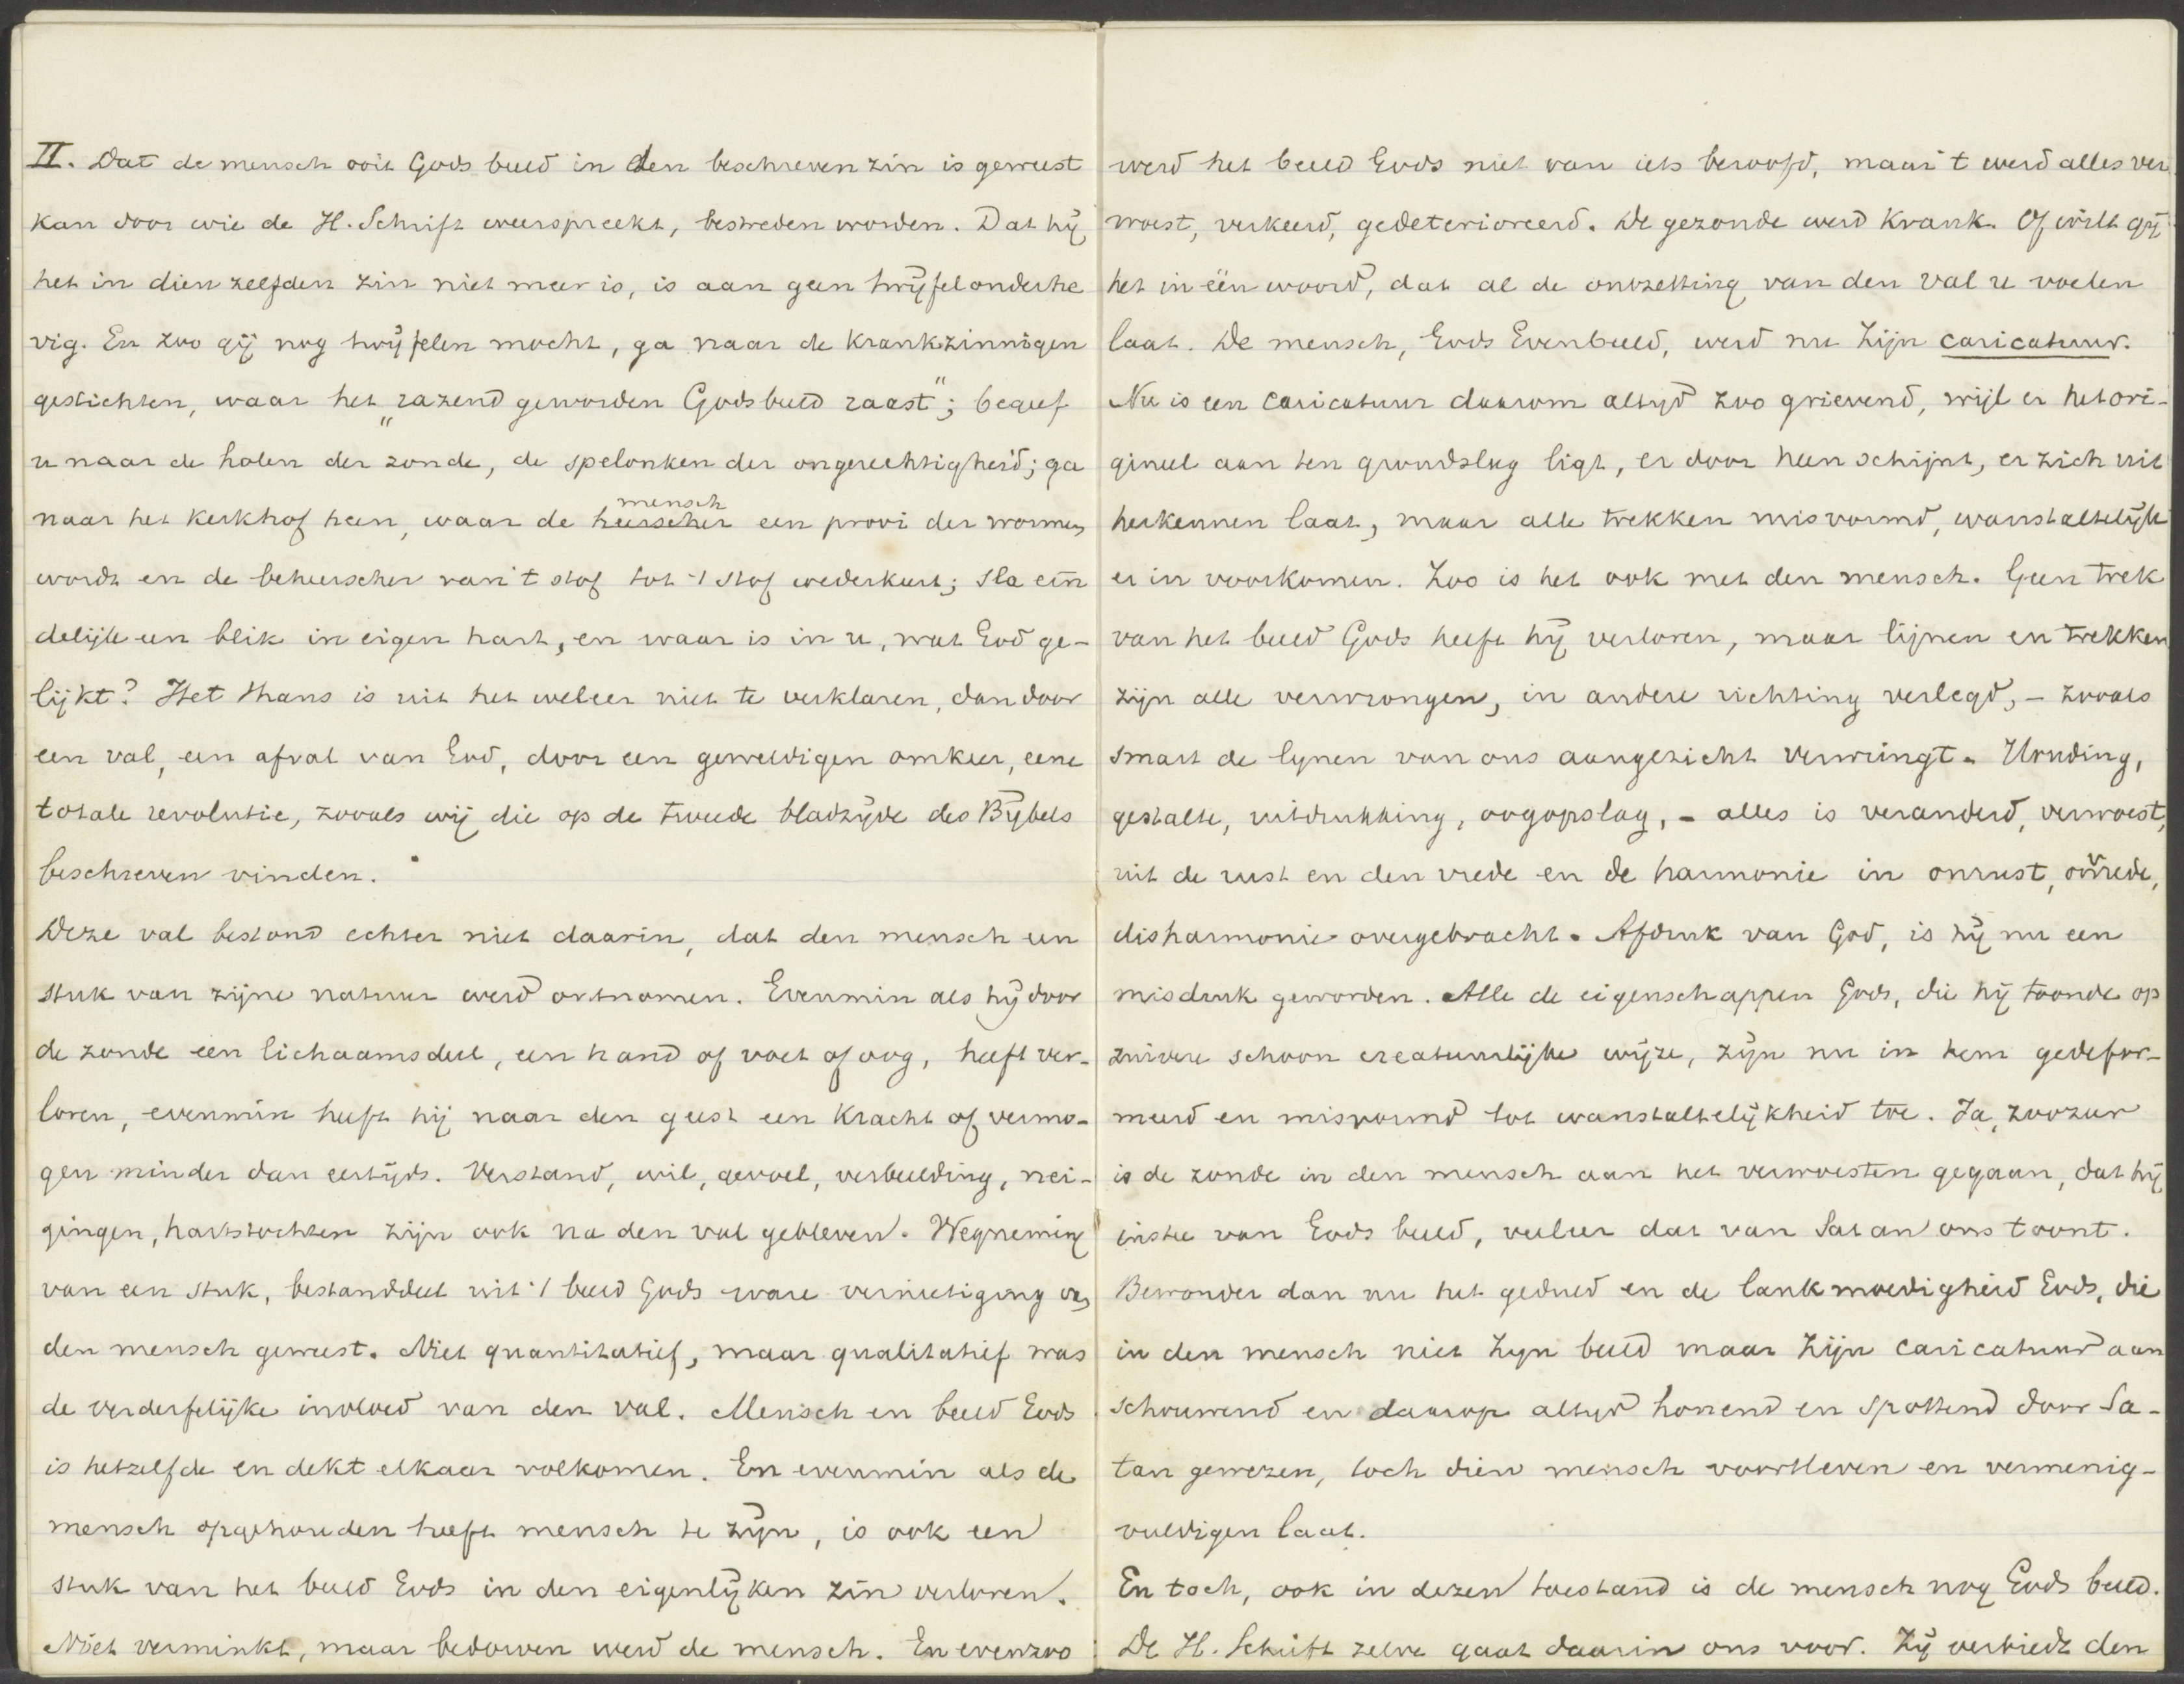 II. Dat de mensch ooit Gods beeld in den beschreven zin is geweest
kan door wie de H. Schrift weerspreekt, bestreden worden. Dat hij
het in dien zelfden zin niet meer is, is aan geen twijfel onderhe
vig. En zoo gij nog twijfelen mocht, ga naar de krankzinnigen
gestichten, waar het „razend geworden Godsbeeld raast"; begeef
u naar de holen der zonde, de spelonken der ongerechtigheid; ga
naar het kerkhof heen, waar de heerscher mensch een prooi der wormen
wordt en de beheerscher van 't stof tot 't stof wederkeert; sla ein
delijk een blik in eigen hart, en waar is in u, wat God ge-
lijkt? Het thans is uit het weleer niet te verklaren, dan door
een val, een afval van God, door een geweldigen omkeer, eene
totale revolutie, zooals wij die op de tweede bladzijde des Bijbels
beschreven vinden.
Deze val bestond echter niet daarin, dat den mensch een
stuk van zijne natuur werd ontnomen. Evenmin als hij door
de zonde een lichaamsdeel, een hand of voet of oog, heeft ver-
loren, evenmin heeft hij naar den geest een kracht of vermo-
gen minder dan eertijds. Verstand, wil, gevoel, verbeelding, nei-
gingen, hartstochten zijn ook na den val gebleven. Wegneming
van een stuk, bestanddeel uit 't beeld Gods ware vernietiging van
den mensch geweest. Niet quantitatief, maar qualitatief was
de verderfelijke invloed van den val. Mensch en beeld Gods
is hetzelfde en dekt elkaar volkomen. En evenmin als de
mensch opgehouden heeft mensch te zijn, is ook een
stuk van het beeld Gods in den eigenlijken zin verloren.
Niet verminkt, maar bedorven werd de mensch. En evenzoo
werd het beeld Gods niet van iets beroofd, maar 't werd alles ver
woest, verkeerd, gedeterioreerd. De gezonde werd krank. Of wilt gij
het in één woord, dat al de ontzetting van den val u voelen
laat. De mensch, Gods Evenbeeld, werd nu Zijn caricatuur.
Nu is een caricatuur daarom altijd zoo grievend, wijl er het ori-
gineel aan ten grondslag ligt, er door heen schijnt, er zich uit
herkennen laat, maar alle trekken misvormd, wanstaltelijk
er in voorkomen. Zoo is het ook met den mensch. Geen trek
van het beeld Gods heeft hij verloren, maar lijnen en trekken
zijn alle verwrongen, in andere richting verlegd, - zooals
smart de lijnen van ons aangezicht verwringt. Houding,
gestalte, uitdrukking, oogopslag, - alles is veranderd, verwoest,
uit de rust en den vrede en de harmonie in onrust, onvrede,
disharmonie overgebracht. Afdruk van God, is hij nu een
misdruk geworden. Alle de eigenschappen Gods, die hij toonde op
zuivere schoon creatuurlijke wijze, zijn nu in hem gedefor-
meerd en misvormd tot wanstaltelijkheid toe. Ja, zoozeer
is de zonde in den mensch aan het verwoesten gegaan, dat hij
instee van Gods beeld, veeleer dat van Satan ons toont.
Bewonder dan nu het geduld en de lankmoedigheid Gods, die
in den mensch niet Zijn beeld maar Zijn caricatuur aan
schouwend en daarop altijd honend en spottend door Sa-
tan gewezen, toch dien mensch voortleven en vermenig-
vuldigen laat.
En toch, ook in dezen toestand is de mensch nog Gods beeld.
De H. Schrift zelve gaat daarin ons voor. Zij verbiedt den